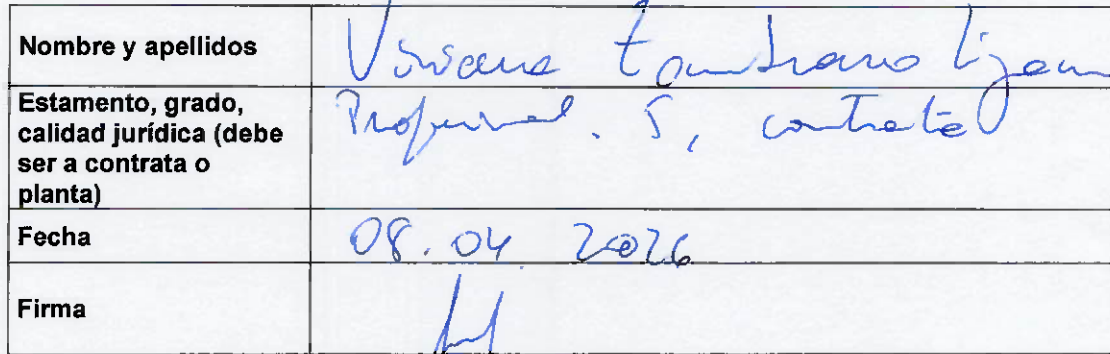 Nombre y apellidos Viviana Zambrano
Estamento, grado,
calidad jurídica (debe
ser a contrata o
planta)
Profesional. 5, contrata
Fecha 08.04 2026
Firma